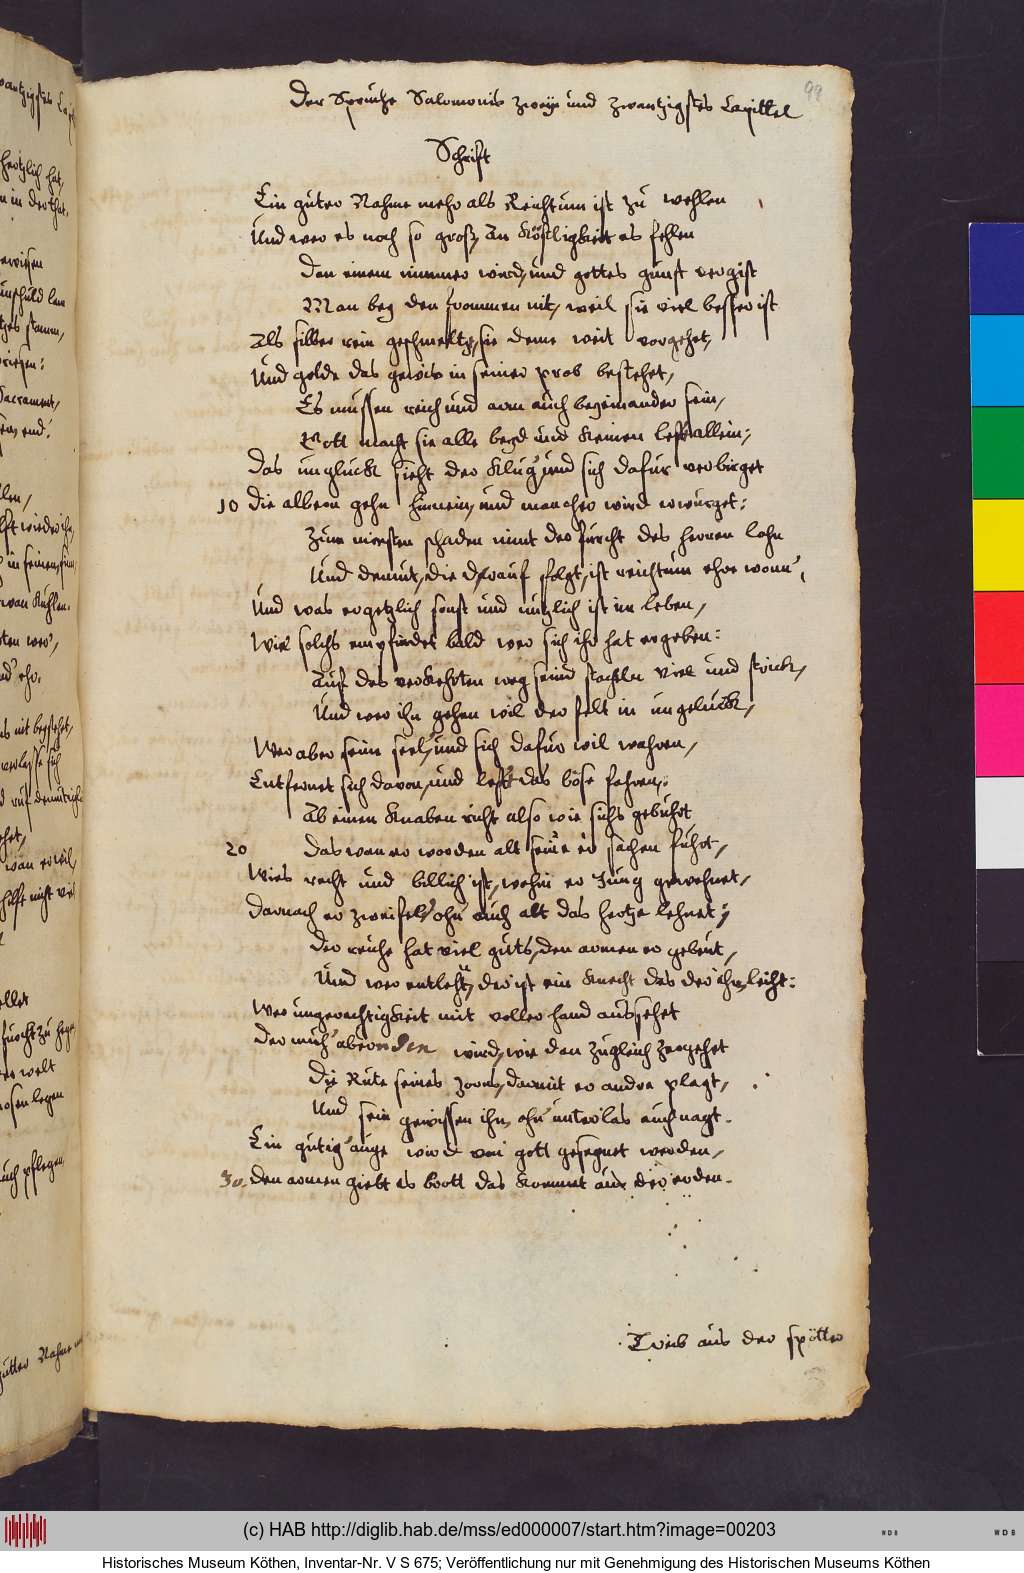 99
Der Spruche Salomonis zweÿ und zwantzigstes Capittel
Schrift
Ein guter Nahme mehr als Reichtum ist zu wehlen
Und wer es noch so groß, An Köstligkeit es fehlen
Dan einem nimmer wird, und gottes gunst vergist
Man beÿ den frommen nit, weil sie viel besser ist
Als silber rein geschmeltzt, sie deme weit vorgehet,
Und golde das gewis in seiner prob bestehet,
Es mussen reich und arm auch beyeinander sein,
Gott macht sie alle beyd und keinen lest allein;
Das ungluck sieht der Klug, und sich dafur verbirget
10 Die albern gehn hinnein, und mancher wird erwurget:
Zum meisten schaden nimt der furcht des herren lohn
Und demut, die drauf folgt, ist reichtum ehre wonn,
Und was ergetzlich sonst und nutzlich ist im leben,
Wie solchs empfindet bald wer sich ihr hat ergeben:
Auf des verkehrten weg seind stacheln viel und strick,
Und wer ihn gehen wil der felt in ungeluck,
Wer aber seine seel, und sich dafur wil wahren,
Entfernet sich davon, und lest das böse fahren,:
Ab einen Knaben richt also wie sichs gebuhrt
20 Das wan er worden alt seine er sachen fuhrt,
Wies recht und billich ist, wohin er Jung gewehnet,
Darnach er zweifels ohn auch alt das hertze lehnet;
Der reiche hat viel guts, den armen er gebeut,
Und wer entlehnt, der ist ein Knecht des der ihm leiht:
Wer ungerechtigkeit mit voller hand aussehet
Der muh abernden wird, wie den zugleich zergehet
Die Rute seines zorns, darmit er andre plagt,
Und sein gewissen ihn, ohn unterlas auch nagt.
Ein gutig auge wird von gott gesegnet werden,
30. den armen giebt es brott das kommet aus der erden.
Treib aus der spötter
(c) HAB http://diglib.hab.de/mss/ed000007/start.htm?image=00203
WDB
WDB
Historisches Museum Köthen, Inventar-Nr. V S 675; Veröffentlichung nur mit Genehmigung des Historischen Museums Köthen